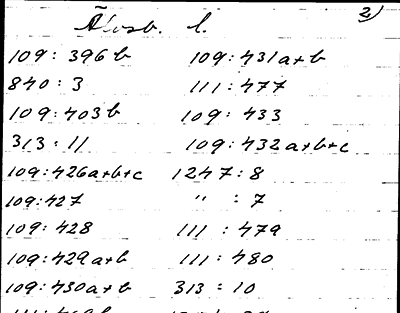 2)
Älvsb. l.
109: 396 b 109: 431 a+b
840 : 3 111 : 477
109: 403 b 109: 433
313 : 11 109: 432 a+b+c
109: 426 a+b+c 1247 : 8
109: 427 " : 7
109: 428 111 : 479
109: 429 a+b 111 : 480
109: 430 a+b 313 : 10